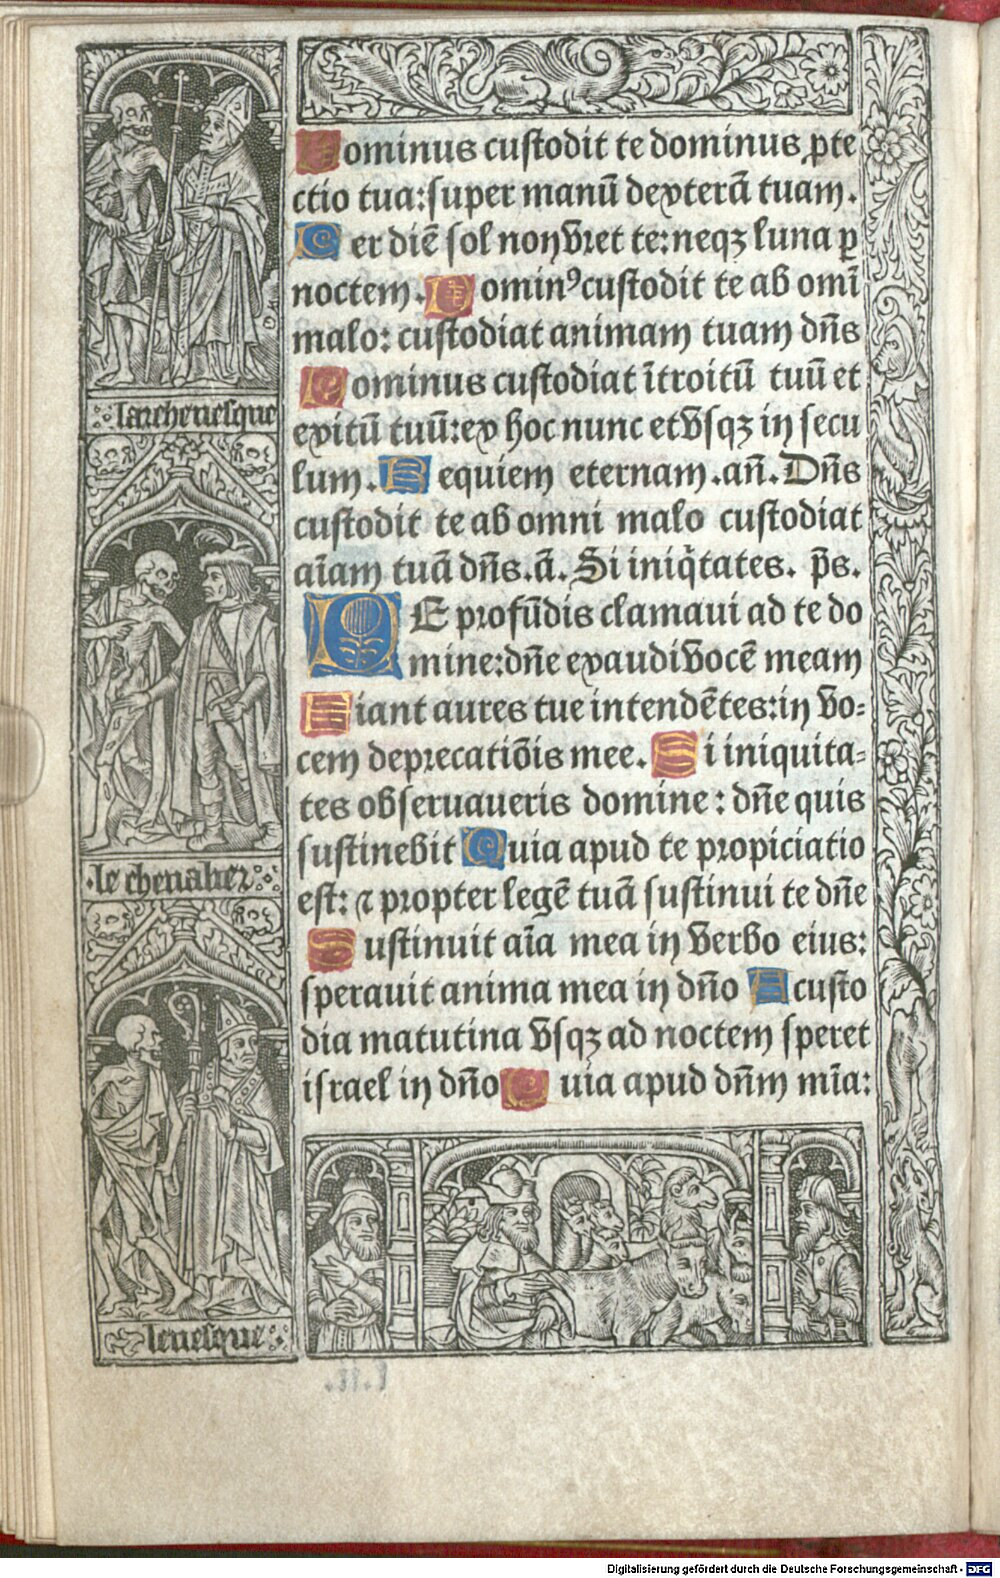 Dominus custodit te dominus ꝓte
ctio tua: super manū dexterā tuam.
Per diē sol non vret te: neqꝫ luna ꝑ
noctem. Dominꝰ custodit te ab omī
malo: custodiat animam tuam dn̄s
Dominus custodiat ītroitū tuū et
exitū tuū: ex hoc nunc et vsqꝫ in secu
lum. Requiem eternam. an̄. Dn̄s
custodit te ab omni malo custodiat
aīam tuā dn̄s. ā. Si iniq̄tates. p̄s.
DE profūdis clamaui ad te do
mine: dn̄e exaudi vocē meam
Fiant aures tue intendētes: in vo-
cem deprecatiōis mee. Si iniquita-
tes obseruaueris domine: dn̄e quis
sustinebit Quia apud te propiciatio
est: ⁊ propter legē tuā sustinui te dn̄e
Sustinuit aīa mea in verbo eius:
sperauit anima mea in dn̄o A custo
dia matutina vsqꝫ ad noctem speret
israel in dn̄o Quia apud dn̄m mīa:
larcheuesque
le cheualier
leuesque
Digitalisierung gefördert durch die Deutsche Forschungsgemeinschaft - DFG